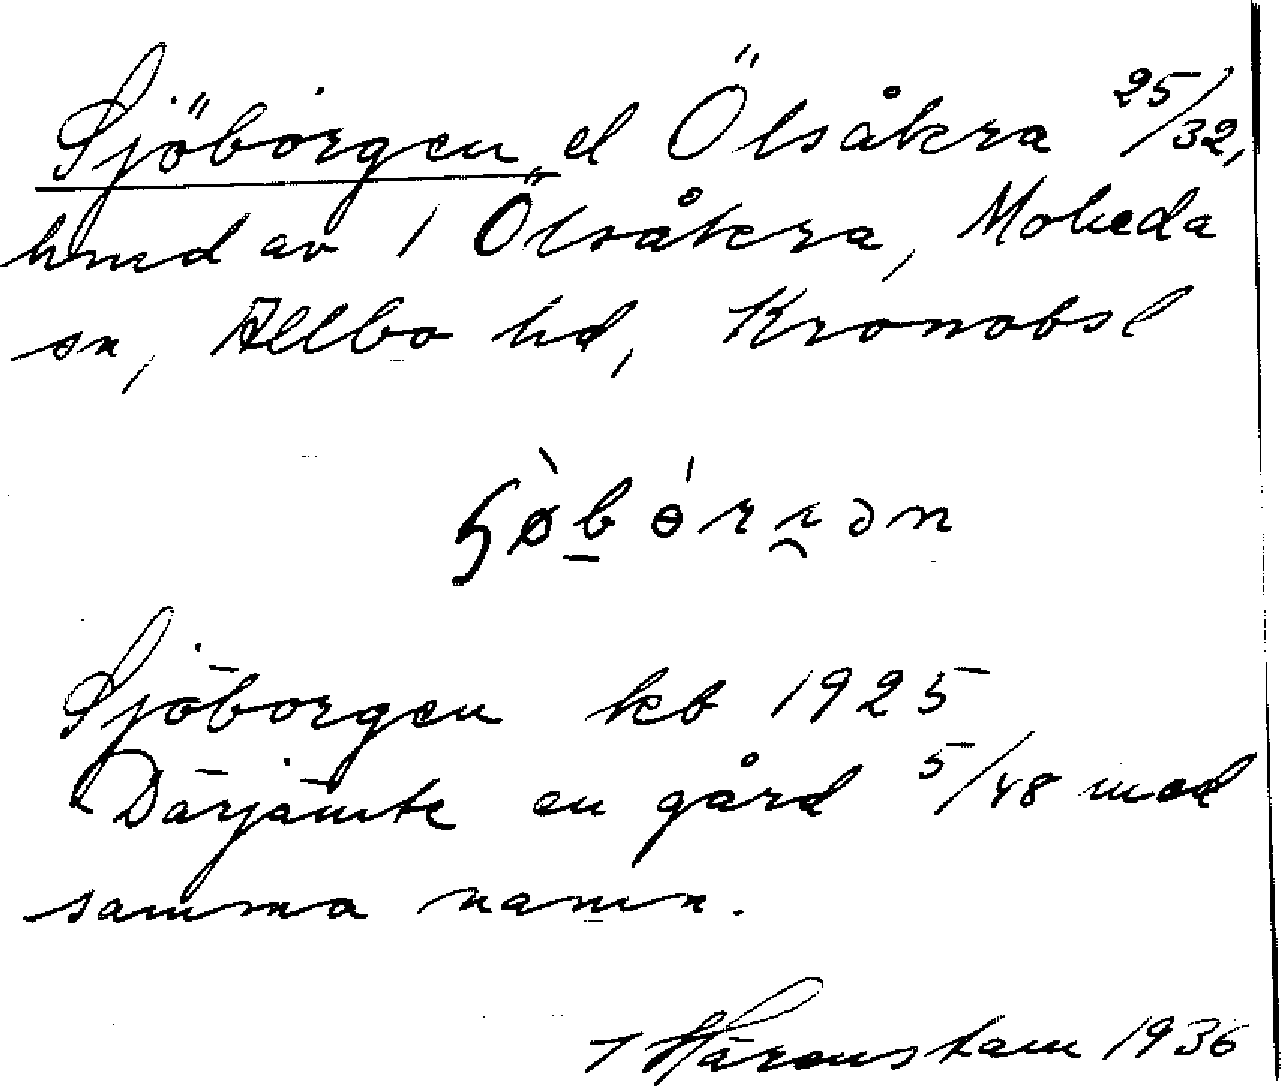 Sjöborgen el Ölsåkra 25/32,
hmd av 1 Ölsåkra, Moheda
sn, Allbo hd, Kronobsl
Sjöborgen kb 1925
Därjämte en gård 5/48 med
samma namn.
Härenstam 1936